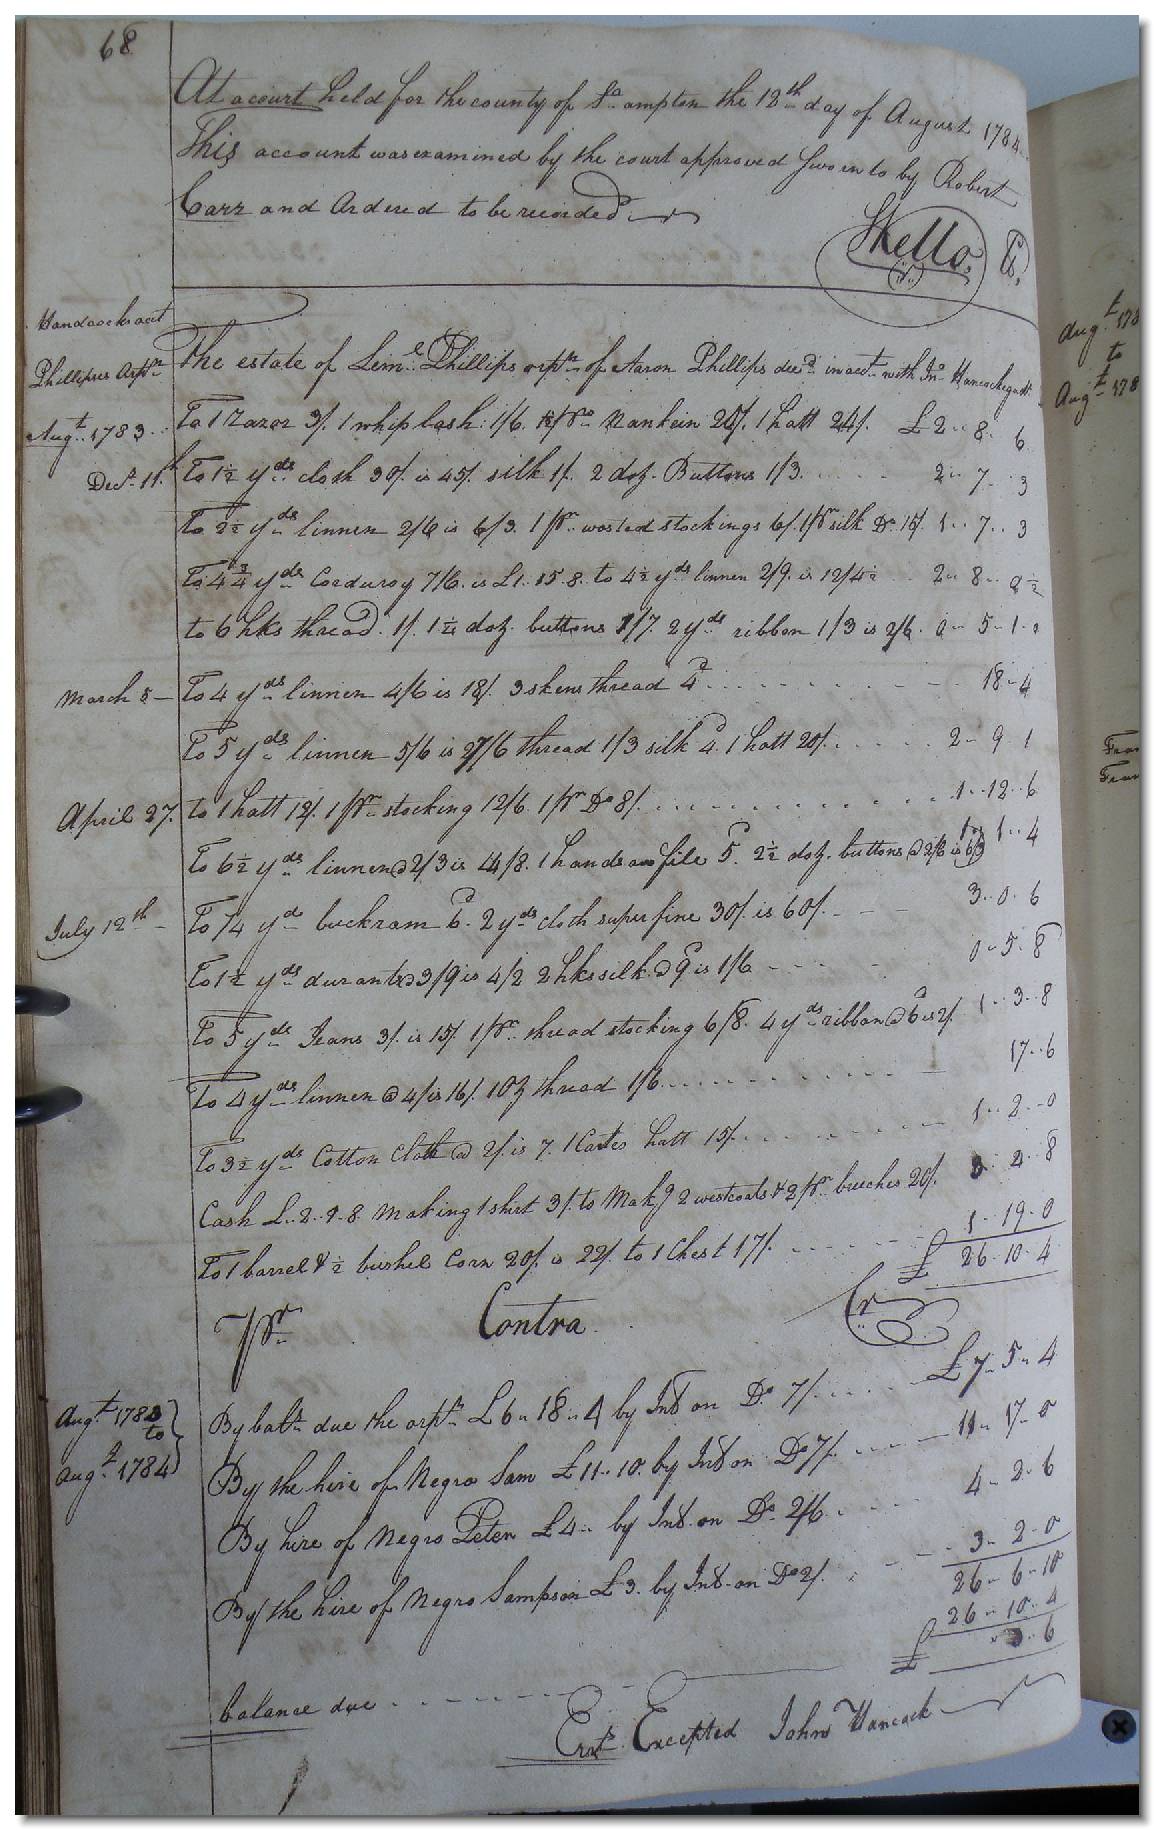 68
At a court held for the county of So ampton the 12th day of August 1784
This account was examined by the court approved Sworn to by Robert
Carr and Ordered to be recorded
SKello Ck.
Handcocks acct
Phillipses Orpn
The estate of Leml Phillips orpn of Aaron Phillips decd in acct with Jno Hancock guard
Augt. 1783. To 1 Razor 3/. 1 whip lash 1/6. Nankein 20/. 1 hatt 24/. £2.. 8.. 6
Decr. 11th To 1½ yds cloth 30/. is 45/. silk 1/. 2 doz. Buttons 1/3. 2.. 7.. 3
To 2½ yds linnen 2/6 is 6/3. 1 pr. wosted stockings 6/. 1 pr silk Do. 15/. 1.. 7.. 3
To 4¾ yds Corduroy 7/6. is £1.15.8. to 4½ yds linnen 2/9. is 12/4½ 2.. 8.. 0½
to 6 hks thread. 1/. doz. buttons 1/7. 2 yds ribbon 1/3 is 2/6. 0.. 5.. 1..
March 5 To 4 yds linnen 4/6 is 18/. 3 skens thread 4d 18.. 4
To 5 yds linnen 5/6 is 27/6 thread 1/3 silk 4d. 1 hatt 20/. 2.. 9.. 1
April 27. to 1 hatt 12/. 1 pr stocking 12/6. 1 pr Do 8/. 1.. 12.. 6
To 6½ yds linnen @ 2/3 is 14/8. 1 handsaw file 5d. 2½ doz. buttons @ 2/6 is 6/3 1.. 1.. 4
July 12th To ¼ yd buckram 6d. 2 yds cloth superfine 30/. is 60/. 3.. 0.. 6
To 1½ yds durants @ 3/9 is 4/2 2 hks silk @ 9d is 1/6 0.. 5.. 8
To 5 yds Jeans 3/. is 15/. 1 pr. thread stocking 6/8. 4 yds ribbon @ 6d is 2/. 1.. 3.. 8
To 4 yds linnen @ 4/ is 16/. 1 oz thread 1/6 17.. 6
To 3½ yds Cotton Cloth @ 2/. is 7. 1 hatt 15/. 1.. 2.. 0
Cash £..2..9..8. making 1 shirt 3/. to Makg 2 westcoats & 2 pr breeches 20/. 3 2.. 8
To 1 barrel & ½ bushel Corn 20/. is 22/. to 1 Chest 17/. 1.. 19.. 0
£ 26.. 10.. 4
Pr Contra Cr
Augt 1783 to Augt 1784
By bale. due the orpn £6.. 18.. 4 by Int on Do 7/. £7.. 5.. 4
By the hire of Negro Sam £11.. 10. by Int on Do 7/. 11.. 17.. 0
By hire of Negro Peter £4.. by Int. on Do. 2/6. 4.. 2.. 6
By the hire of Negro Sampson £3. by Int. on Do 2/. 3.. 2.. 0
26.. 6.. 10
26.. 10.. 4
balance due £ 3.. 6
Errs. Excepted John Hancock
Augt 178
to
Augt 178